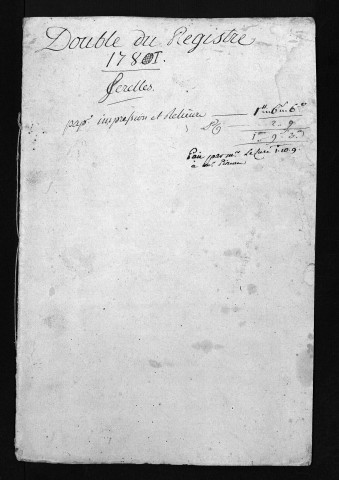 Double du Registre
1781.
Cerelles.
pap.r impression et Relieure 1.tt 6.s 6.d
2. 9
1.tt 9.s 3.d
Paié par m.r Le Curé 1.10.9
à